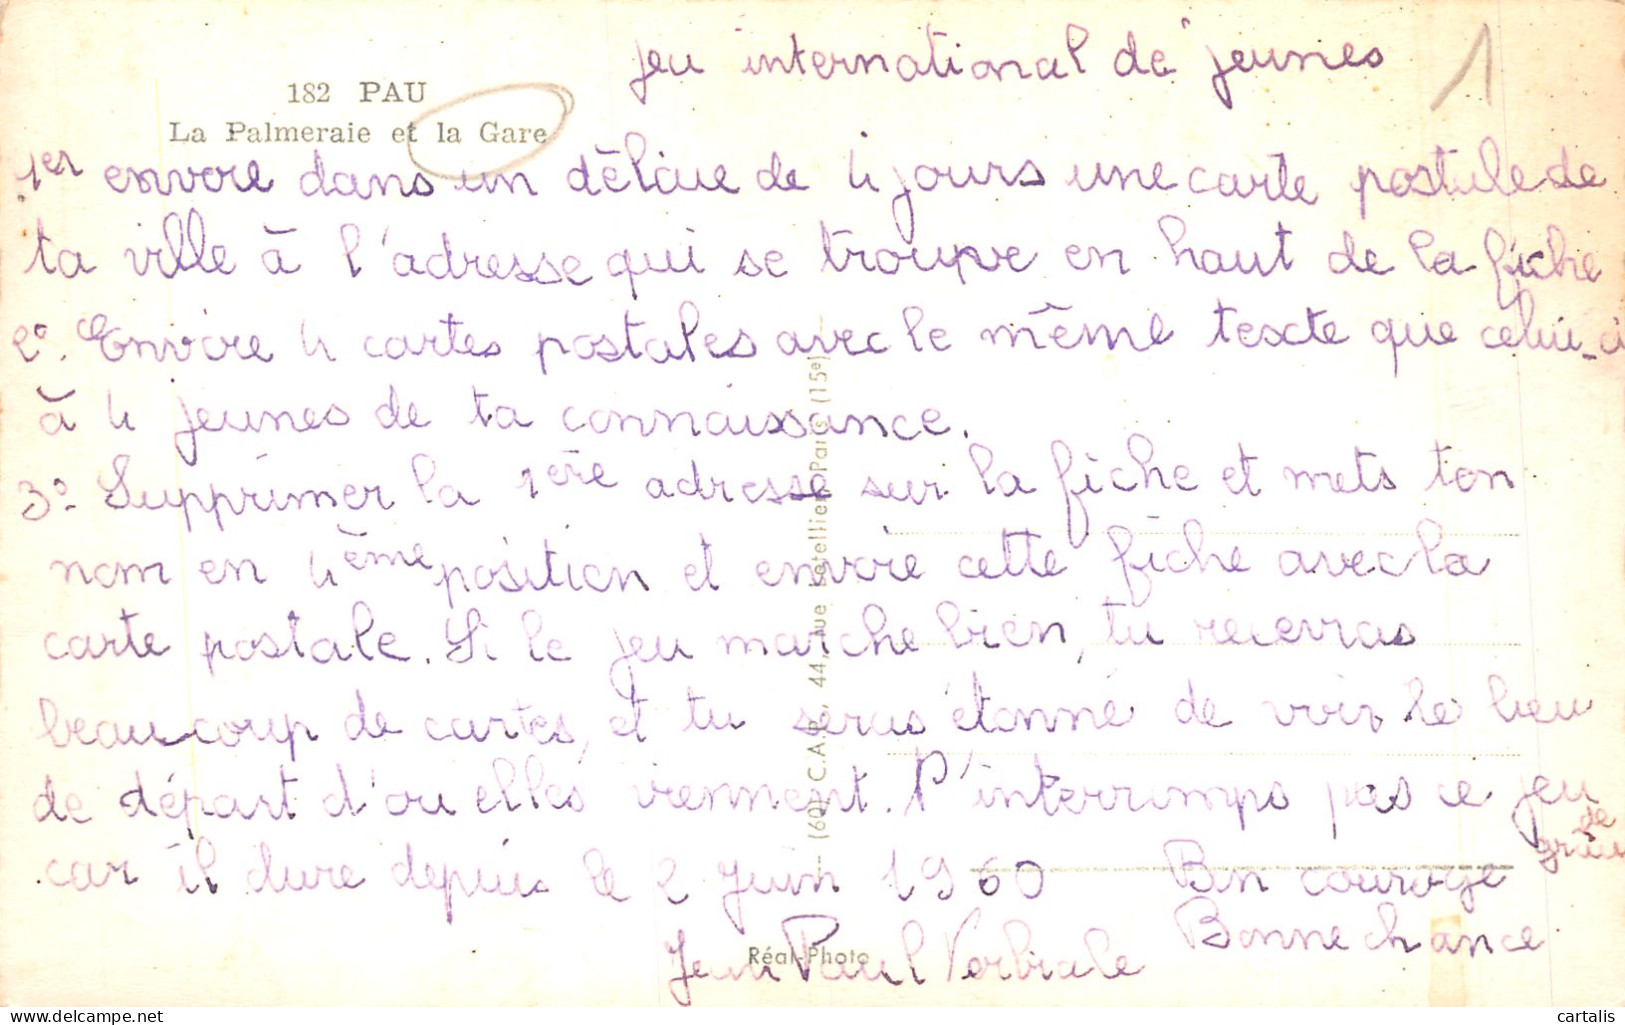 jeu international de jeunes
1
182 PAU
La Palmeraie et la Gare
1er envoie dans un délaie de 4 jours une carte postale de
ta ville à l'adresse qui se trouve en haut de la fiche
2°. Envoie 4 cartes postales avec le même texte que celui-ci
à 4 jeunes de ta connaissance.
3°- Supprimer la 1ère adresse sur la fiche et mets ton
nom en 4ème position et envoie cette fiche avec la
carte postale. Si le jeu marche bien, tu recevras
beaucoup de cartes, et tu seras étonné de voir le lieu
de départ d'ou elles viennent. N'interromps pas ce jeu
de
car il dure depuis le 2 Juin 1960 Bon courage
Bonne chance
Jean Paul
Réal-Photo
(60) C.A.P., 44, rue Letellier, Paris (15e)
delcampe.net
cartalis